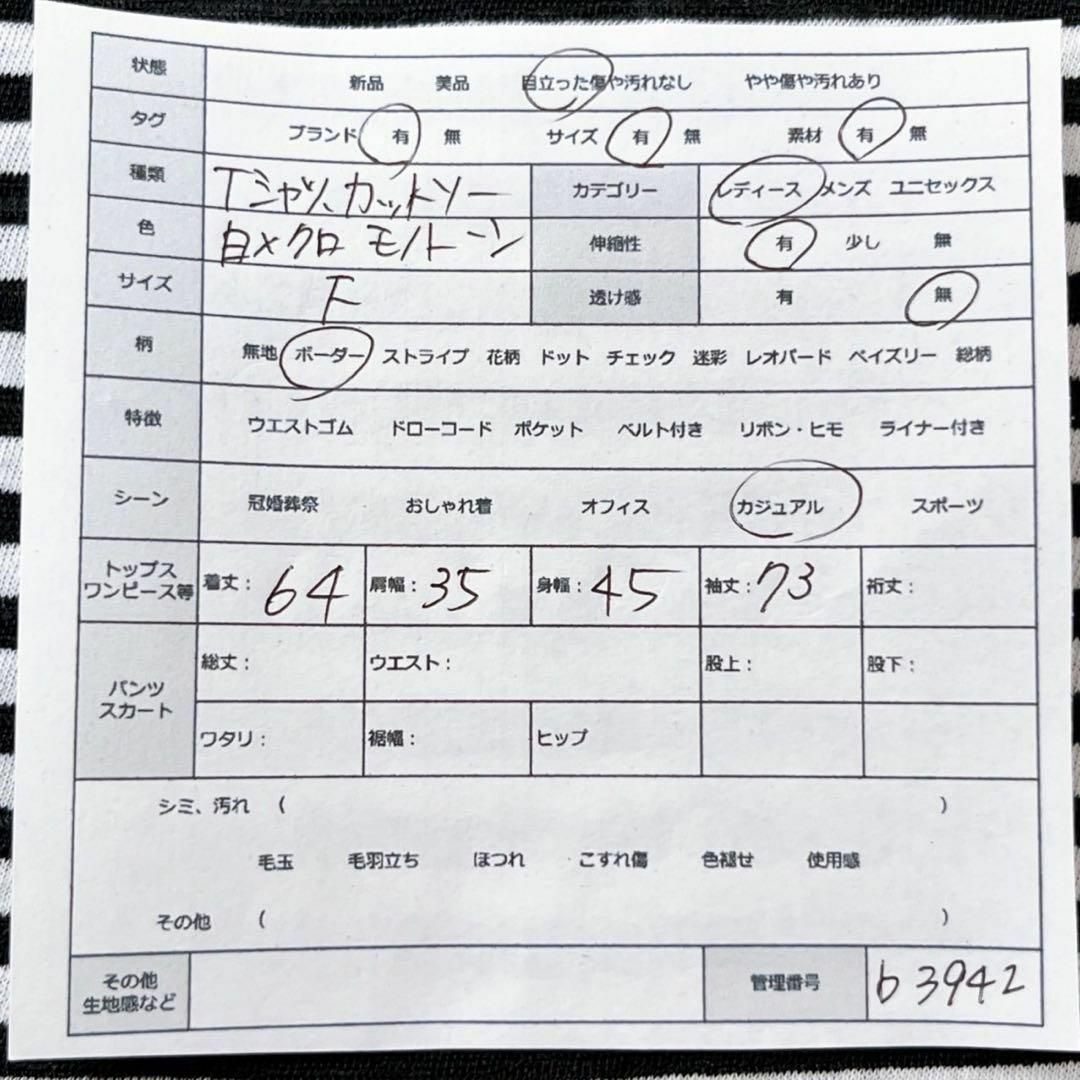 状態 新品 美品 目立った傷や汚れなし やや傷や汚れあり
タグ ブランド 有 無 サイズ 有 無 素材 有 無
種類 Tシャツ、カットソー カテゴリー レディース メンズ ユニセックス
色 白×クロ モノトーン 伸縮性 有 少し 無
サイズ F 透け感 有 無
柄 無地 ボーダー ストライプ 花柄 ドット チェック 迷彩 レオパード ペイズリー 総柄
特徴 ウエストゴム ドローコード ポケット ベルト付き リボン・ヒモ ライナー付き
シーン 冠婚葬祭 おしゃれ着 オフィス カジュアル スポーツ
トップス
ワンピース等 着丈: 64 肩幅: 35 身幅: 45 袖丈: 73 裄丈:
パンツ
スカート 総丈: ウエスト: 股上: 股下:
ワタリ: 裾幅: ヒップ
シミ、汚れ ( )
毛玉 毛羽立ち ほつれ こすれ傷 色褪せ 使用感
その他 ( )
その他
生地感など 管理番号 b3942